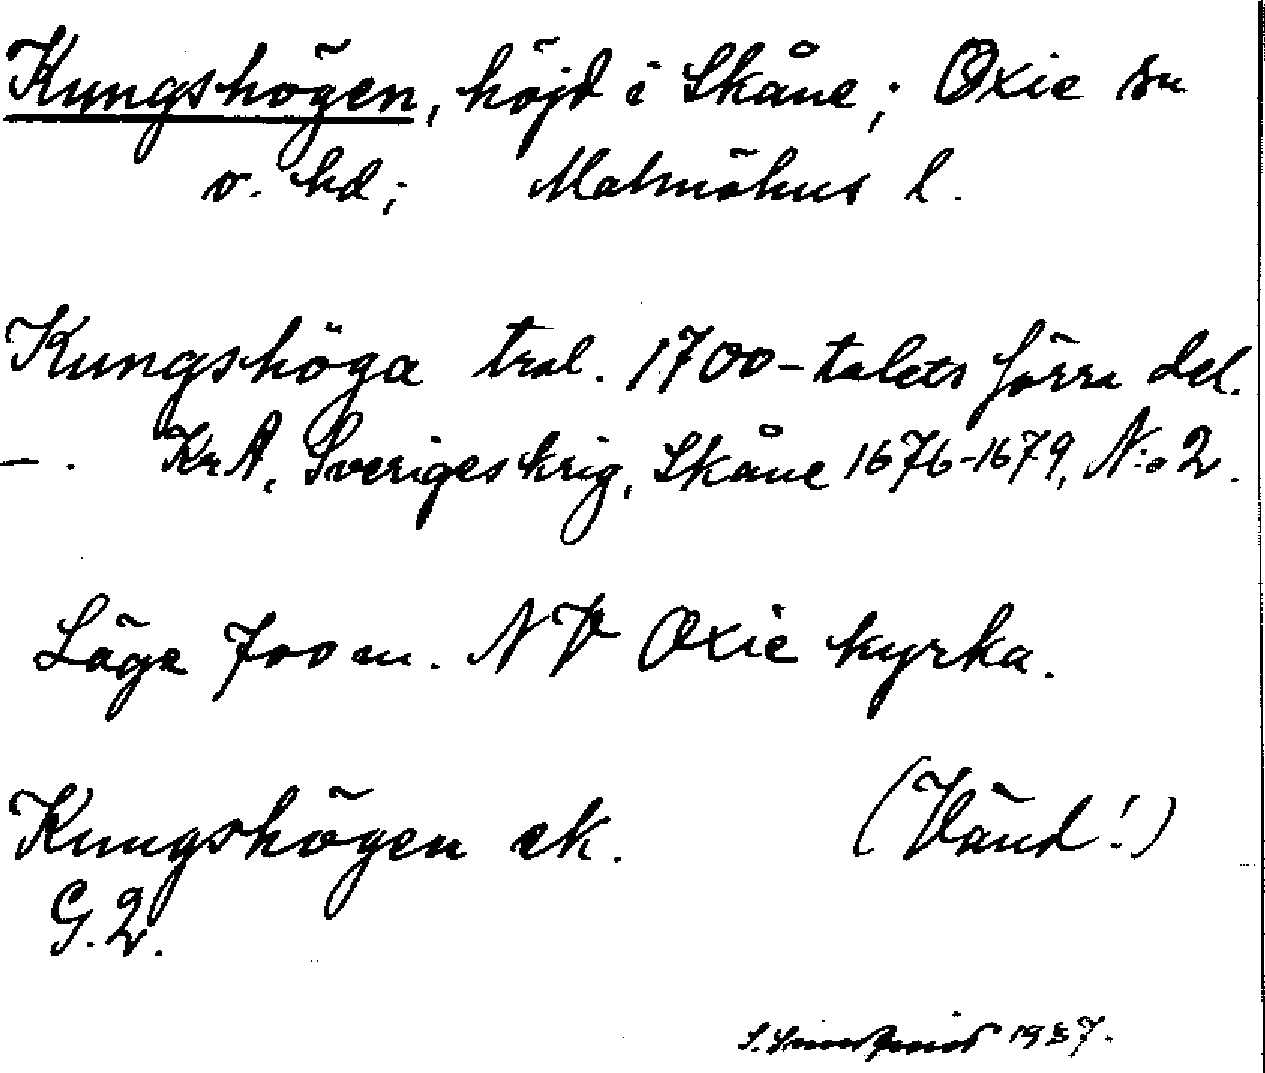 Kungshögen, höjd i Skåne; Oxie sn
o. hd; Malmöhus l.
Kungshöga trol. 1700-talets förra del.
– . KrA, Sveriges krig, Skåne 1676-1679, N:o 2.
Läge 700 m. NV Oxie kyrka.
Kungshögen ek. (Vänd!)
G. 2.
1937.